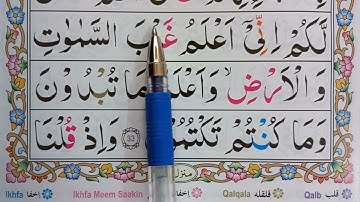 لَّكُمْ اِنِّىْٓ اَعْلَمُ غَيْبَ السَّمٰوٰتِ
وَالْاَرْضِ ۙ وَاَعْلَمُ مَا تُبْدُوْنَ
وَمَا كُنْتُمْ تَكْتُمُوْنَ ﴿33﴾ وَاِذْ قُلْنَا
منزل
Ikhfa اخفا Ikhfa Meem Saakin اخفا Qalqala قلقله Qalb قلب